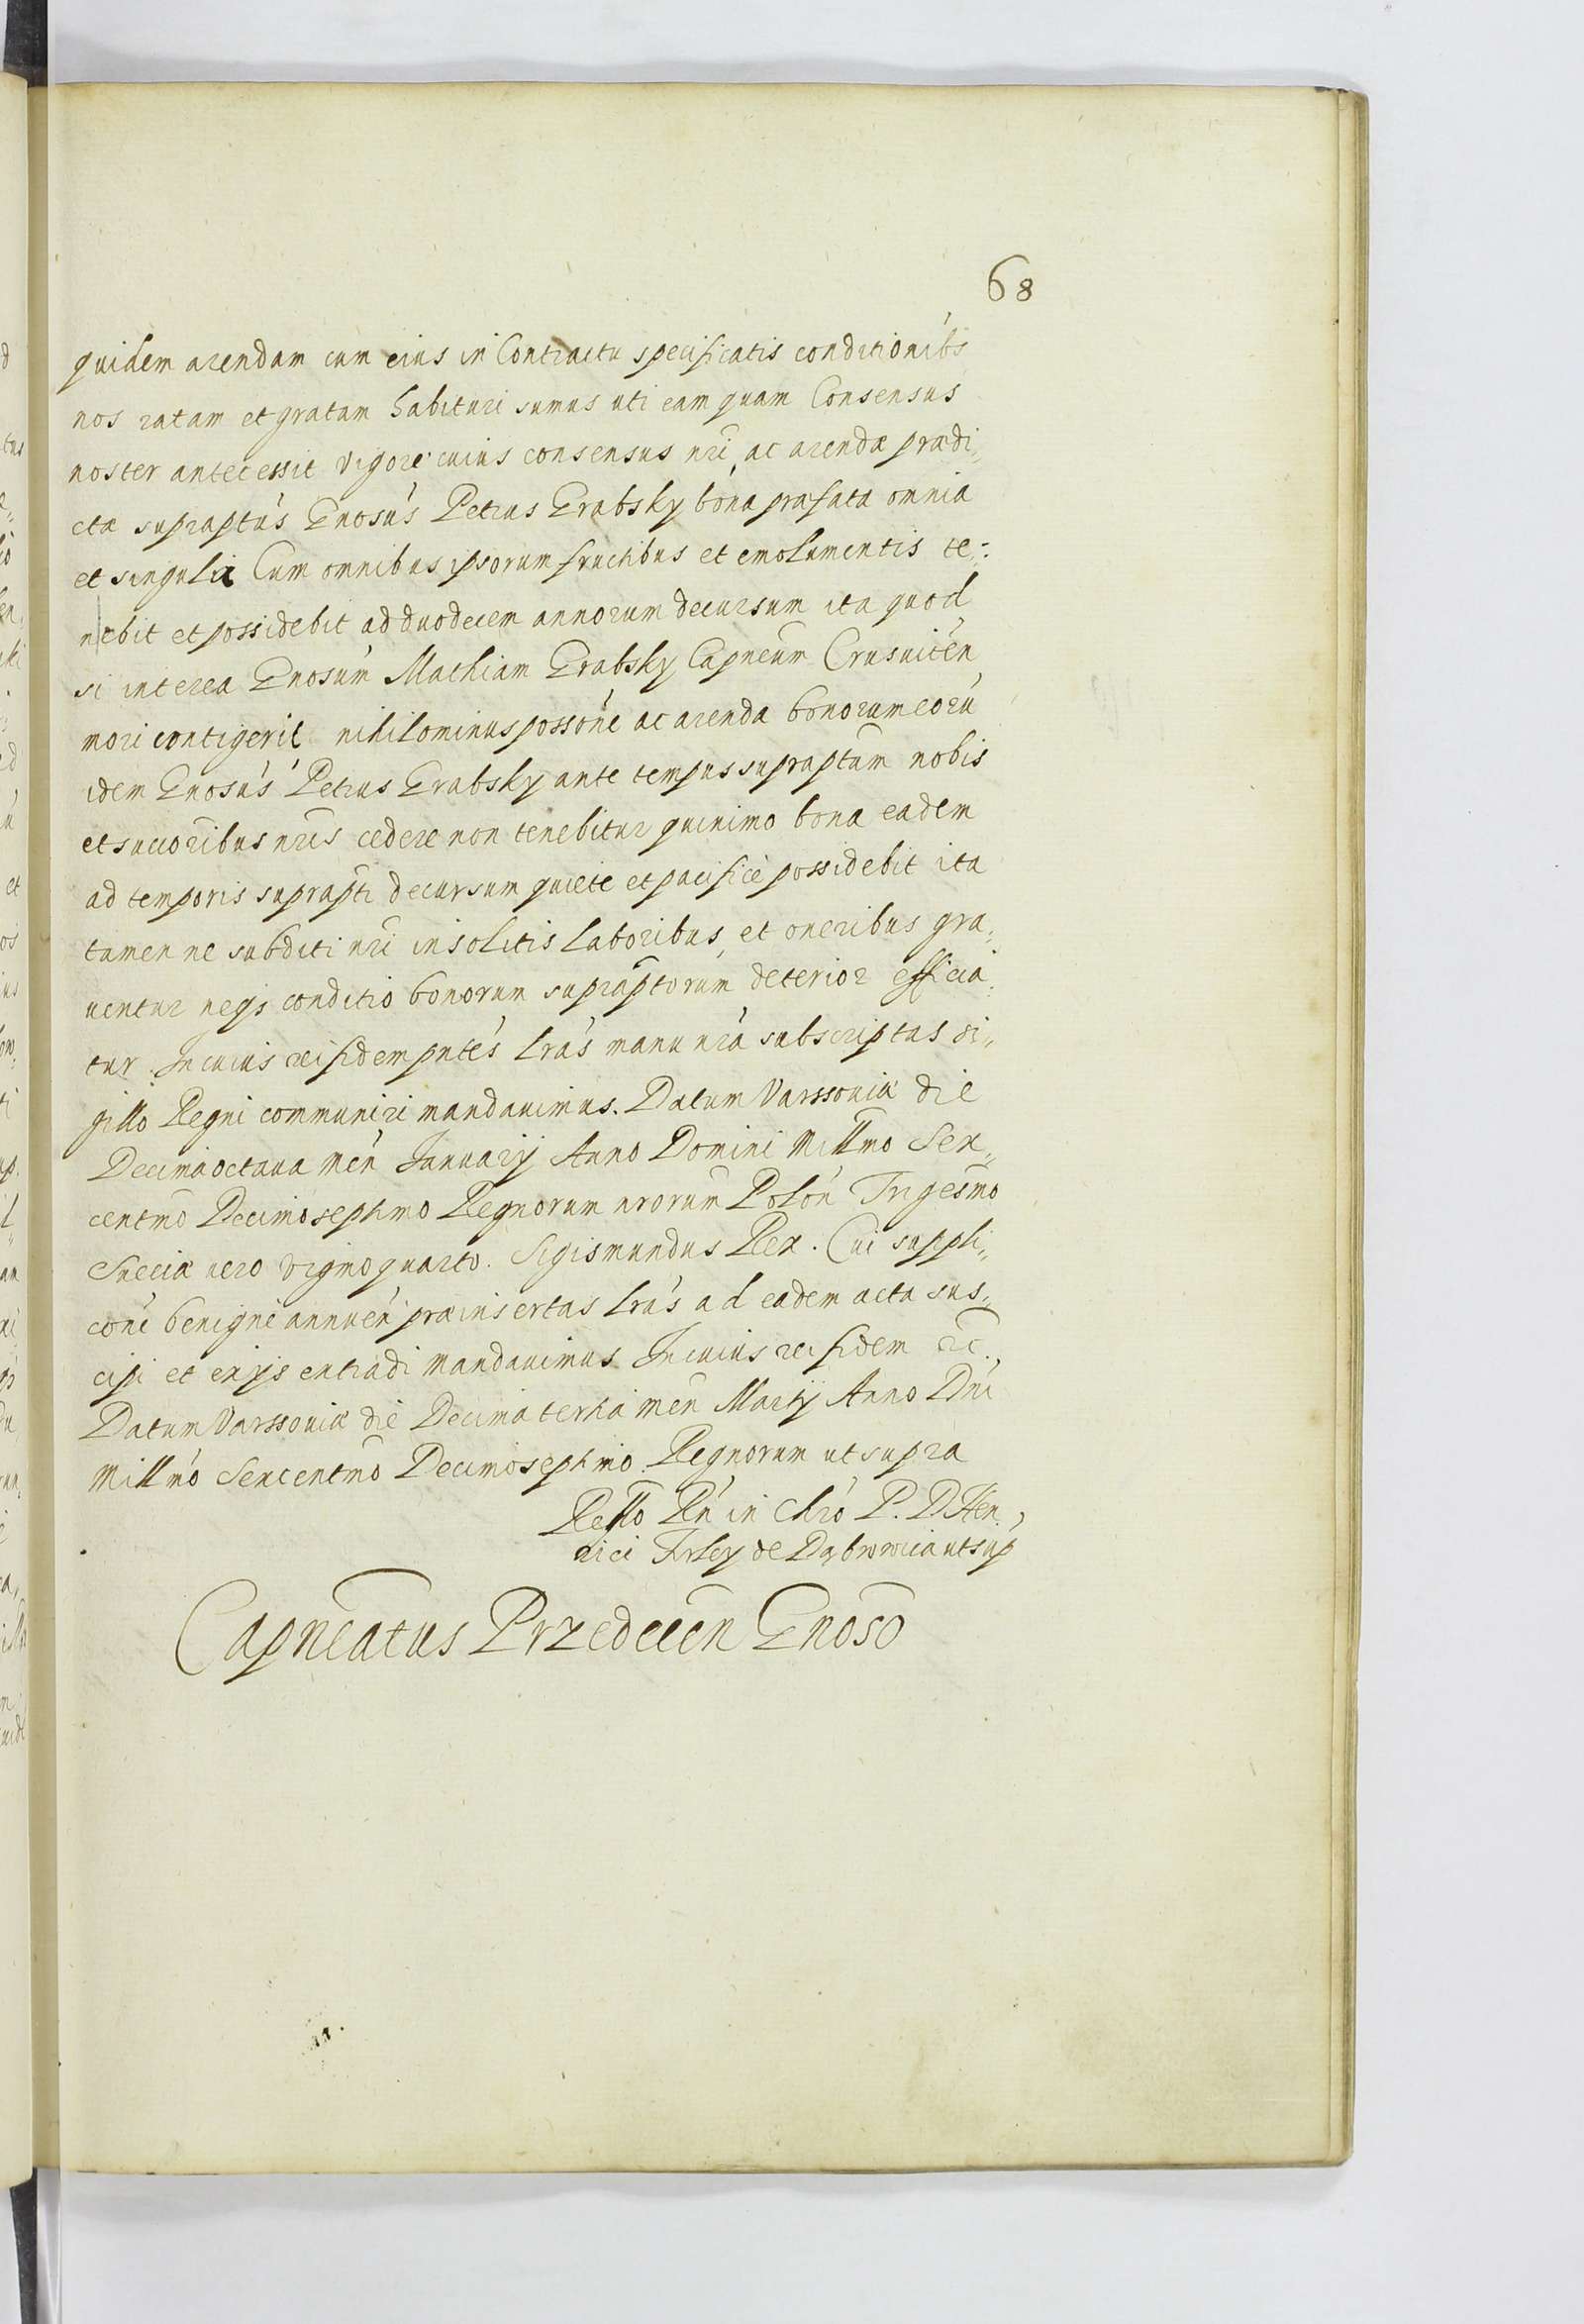 68
quidem arendam cum eius in Contractu specificatis conditionibs
nos ratam et gratam habituri sumus uti eam quam Consensus
noster antecessit vigore cuius consensus nri ac arendæ prædi„
ctæ supraptus Gnosus Petrus Grabsky bona præfata omnia
et singula Cum omnibus ipsorum fructibus et emolumentis te„
nebit et possidebit ad duodecem annorum decursum ita quod
si interea Gnosum Mathiam Grabsky Capneum Crusuicen
mori contigerit nihilominus possone ac arenda bonorum eoru
idem Gnosus Petrus Grabsky ante tempus supraptum nobis
et succoribus nris cedere non tenebitur quinimo bona eadem
ad temporis suprapti decursum quiete et pacifice possidebit ita
tamen ne subditi nri insolitis laboribus et oneribus gra„
uentur neqs conditio bonorum supraptorum deterior efficia„
tur. In cuius rei fidem pntes lras manu nra subscriptas si„
gillo Regni communiri mandauimus. Datum Varssouiæ die
Decimaoctaua men January Anno Domini Millmo Sex„
centmo Decimoseptimo Regnorum nrorum Polon Trigesmo
Sueciæ uero vigmoquarto. Sigismundus Rex. Cui suppli„
coni benigne annuen præinsertas lras ad eadem acta sus„
cipi et exijs extradi mandauimus. In cuius rei fidem &c.
Datum Varssouiæ die Decima tertia men Martij Anno Dni
Millmo Sexcentmo Decimoseptimo Regnorum ut supra
Rello Rn in Chro P. D. Hen„
rici Firley de Dąbrowica ut sup
Capneatus Przedecen Gnoso